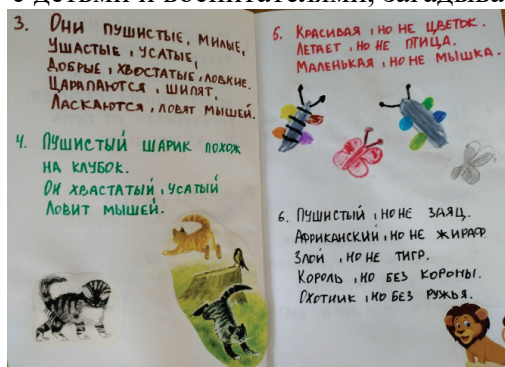 с детьми и воспитателями, загадыва
3. Они пушистые, милые,
Ушастые, усатые,
Добрые, хвостатые, ловкие.
Царапаются, шипят,
Ласкаются, ловят мышей.
4. Пушистый шарик похож
на клубок.
Он хвастатый, усатый
Ловит мышей.
5. Красивая, но не цветок.
Летает, но не птица.
Маленькая, но не мышка.
6. Пушистый, но не заяц.
Африканский, но не жираф.
Злой, но не тигр.
Король, но без короны.
Охотник, но без ружья.